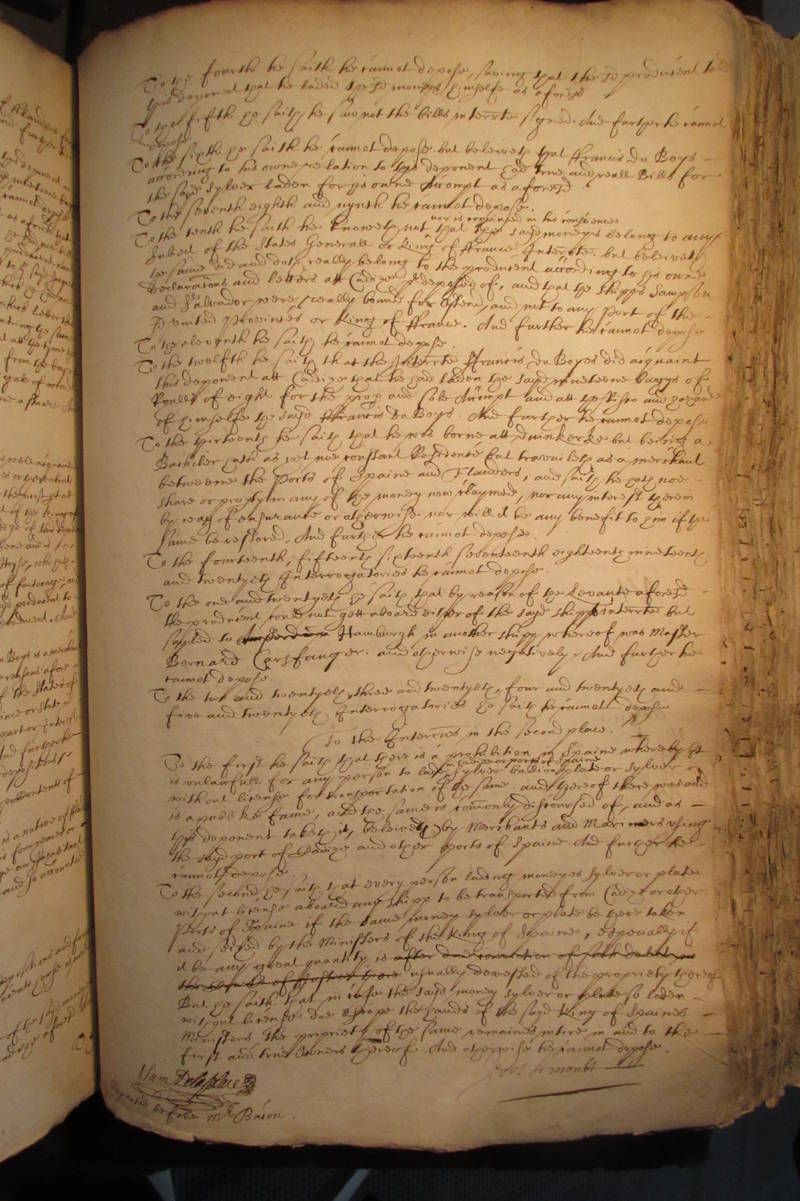 To the fourth he saith he cannot depose, saving that the sd producent told
this deponent that he laded the sd moneys himselfe as aforesd
To the fifth he saith he saw not the bills interrte signed. And further he cannot
depose
To the sixth he saith he cannot depose but beleeveth that ffrancis du Boys -
according to his owne relation to this deponent had true and reall Bills for
the sayd sylver laden for his owne Accompt as aforesd.
To the seventh eighth and nynth he cannot depose.
nor is convinced in his conscience
To the tenth he saith he knoweth not that the sayd moneys belong to any
subiect of the States Generall or King of ffrance Interrte. but beleiveth
the same did and doth really belong to the producent according to his owne
declarations and letters att Cadize predeposed of, and that the shipps Sampson
and Salvador were really bound for Ostend, and not to any Port of the -
sd United Provinces or King of ffrance. And further he cannot depose
To the eleventh he saith he cannot depose.
To the twelfth he saith that the Interrte ffrancis du Boyes did acquaint
this deponent att Cadize that he had laden the sayd nineteene baggs of
Ryalls of eight for the prop and sole Accompt and att the risco and hazard
of himselfe the sayd ffrancis Du Boys. And further he cannot depose.
To the thirteenth he saith that he was borne att Duinkerke but being a
Batcheler hath as yet noe constant Residence but travaileth as a merchant
betweene the Ports of Spaine and Flanders, and saith he hath noe -
share or property in any of the money now claymed, nor any interest therein
by reason of assurance or otherwise. nor will it be any benefit to him if the
same be restored, And further he cannot depose.
To the fourteenth, fifteenth sixteenth seventeenth eighteenth nineteenth
and twentyeth Interrogatories he cannot depose.
To the one and twentyeth he saith that by reason of the Levante aforesd -
the producent could not gett aboard either of the sayd shipps interrte but
sayled to Hamburgh in another shipp whereof was Master
Bernard Carsfanger. and otherwise negatively. And further he
cannot depose
To the two and twentyeth, three and twentyeth, four and twentyeth and -
five and twentyeth Interrogatories he saith he cannot depose
To the Interries in the second place.
To the first he saith that there is a prohibition in Spaine whereby it
at Cadiz or ports of Spaine
is unlawfull for any person to lade sylver bullion plate or sylver
without license for transportation of the same and thereof there was and
is a publicke fame, and the same is commonly discoursed of, and as -
this deponent taketh it, beleived by Merchants and Mariners using
the sayd port of Cadize and other ports of Spaine And further he -
cannot depose.
To the second he saith that every person lading moneyes sylver or plate
without license aboard any shipp to be transported from Cadiz or other
Ports of Spaine if the same money sylver or plate be there taken
and seized by the Ministers of the King of Spaine, especially if
it be any great quantity, is after due
usually devested of the propriety thereof
But he saith that in case the sayd money sylver or plate so laden -
without license doe escape the hands of the sayd King of Spaines
Ministers, the propriety of the same remaines intire in and to the -
first and true Owners thereof. And otherwise he cannot depose.
Repeated before Mr Bacon.